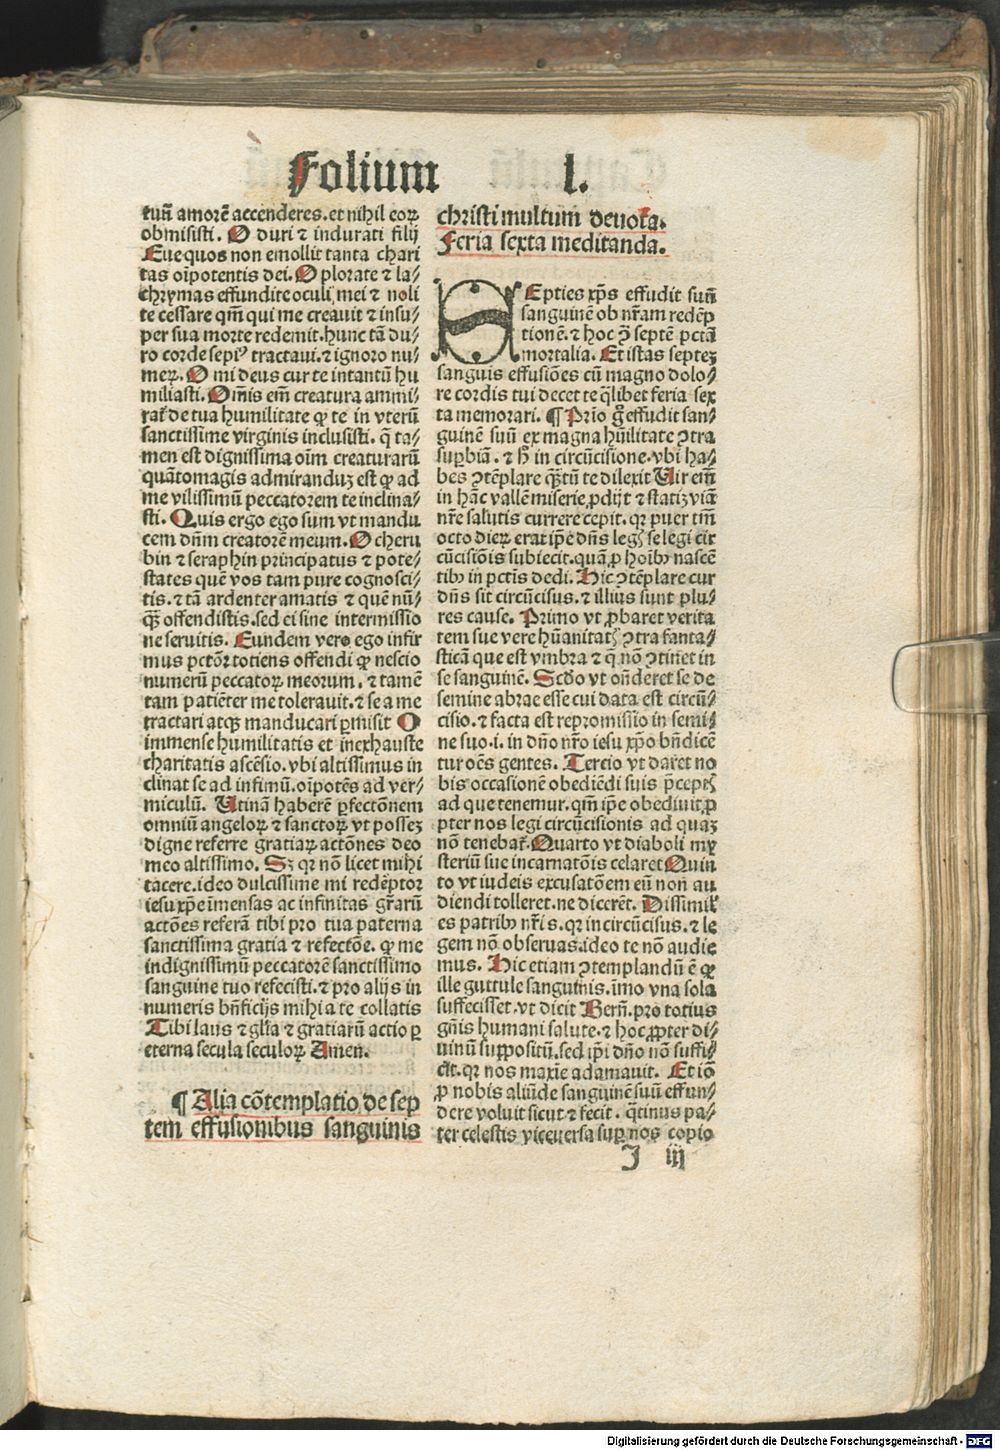 Folium l.
tuū amorē accenderes. et nihil eoꝝ
obmisisti. O duri ⁊ indurati filij
Eue quos non emollit tanta chari
tas oīpotentis dei. O plorate ⁊ la⸗
chrymas effundite oculi mei ⁊ noli
te cessare qm̄ qui me creauit ⁊ insu⸗
per sua morte redemit. hunc tā du⸗
ro corde sepiꝰ tractaui. ⁊ ignoro nu⸗
meꝝ. O mi deus cur te intantū hu
miliasti. Om̄is em̄ creatura ammi⸗
rat̄ de tua humilitate ꝙ te in vterū
sanctissime virginis inclusisti. q̄ ta⸗
men est dignissima oīm creaturarū
quātomagis admiranduꝫ est ꝙ ad
me vilissimū peccatorem te inclina⸗
sti. Quis ergo ego sum vt mandu
cem dn̄m creatorē meum. O cheru
bin ⁊ seraphin principatus ⁊ pote⸗
states quē vos tam pure cognosci⸗
tis. ⁊ tā ardenter amatis ⁊ quē nū⸗
qꝫ offendistis. sed ei sine intermissio
ne seruitis. Eundem vero ego infir
mus pctōr totiens offendi ꝙ nescio
numerū peccatoꝝ meorum. ⁊ tamē
tam patiēter me tolerauit. ⁊ se a me
tractari atqꝫ manducari ꝑmisit O
immense humilitatis et inexhauste
charitatis ascēsio. vbi altissimus in
clinat se ad infimū. oīpotēs ad ver⸗
miculū. Utinā haberē ꝑfectōnem
omniū angeloꝝ ⁊ sanctoꝝ vt posseꝫ
digne referre gratiaꝝ actōnes deo
meo altissimo. Sꝫ qꝛ nō licet mihi
tacere. ideo dulcissime mi redēptor
iesu xp̄e īmensas ac infinitas gr̄arū
actōes referā tibi pro tua paterna
sanctissima gratia ⁊ refectōe. ꝙ me
indignissimū peccatorē sanctissimo
sanguine tuo refecisti. ⁊ pro alijs in
numeris bn̄ficijs mihi a te collatis
Tibi laus ⁊ gl̄ia ⁊ gratiarū actio ꝑ
eterna secula seculoꝝ Amen.
¶ Alia cōtemplatio de sep
tem effusionibus sanguinis
christi multum deuota.
Feria sexta meditanda.
SEpties xp̄s effudit suū
sanguinē ob nr̄am redēp
tionē. ⁊ hoc ꝯ̄ septē pctā
mortalia. Et istas septeꝫ
sanguis effusiōes cū magno dolo⸗
re cordis tui decet te q̄libet feria sex
ta memorari. ¶ Prīo g̊ effudit san⸗
guinē suū ex magna hūilitate ꝯtra
suꝑbiā. ⁊ h̄ in circūcisione. vbi ha⸗
bes ꝯtēplare qꝫtū te dilexit Uir em̄
in hāc vallē miserie ꝓdijt ⁊ statiꝫ viā
nr̄e salutis currere cepit. qꝛ puer tm̄
octo dieꝝ erat ip̄e dn̄s legꝭ se legi cir
cūcisiōis subiecit. quā ꝓ hoībꝰ nascē
tibꝰ in pctīs dedi. Hic ꝯtēplare cur
dn̄s sit circūcisus. ⁊ illius sunt plu⸗
res cause. Primo vt ꝓbaret verita
tem sue vere hūanitatꝭ ꝯtra fanta⸗
sticā que est vmbra ⁊ q̄ nō ꝯtinet in
se sanguinē. Scd̄o vt on̄deret se de
semine abrae esse cui data est circū⸗
cisio. ⁊ facta est repromissio in semi⸗
ne suo .i. in dn̄o nr̄o iesu xp̄o bn̄dicē
tur oēs gentes. Tercio vt daret no
bis occasionē obediēdi suis p̄ceptꝭ
ad que tenemur. qm̄ ip̄e obediuit ꝓ
pter nos legi circūcisionis ad quaꝫ
nō tenebat̄. Quarto vt diaboli my
steriū sue incarnatōis celaret Quin
to vt iudeis excusatōem eū non au
diendi tolleret. ne dicerēt. Dissimil̓
es patribꝰ nr̄is. qꝛ incircūcisus. ⁊ le
gem nō obseruas. ideo te nō audie
mus. Hic etiam ꝯtemplandū ē ꝙ
ille guttule sanguinis. īmo vna sola
suffecisset. vt dicit Bern̄. pro totius
gn̄is humani salute. ⁊ hoc ꝓpter di⸗
uinū suppositū. sed ip̄i dn̄o nō suffi⸗
cit. qꝛ nos maxīe adamauit. Et iō
ꝓ nobis aliūde sanguinē suū effun⸗
dere voluit sicut ⁊ fecit. qtinus pa⸗
ter celestis viceversa suꝑ nos copio
J iij
Digitalisierung gefördert durch die Deutsche Forschungsgemeinschaft - DFG